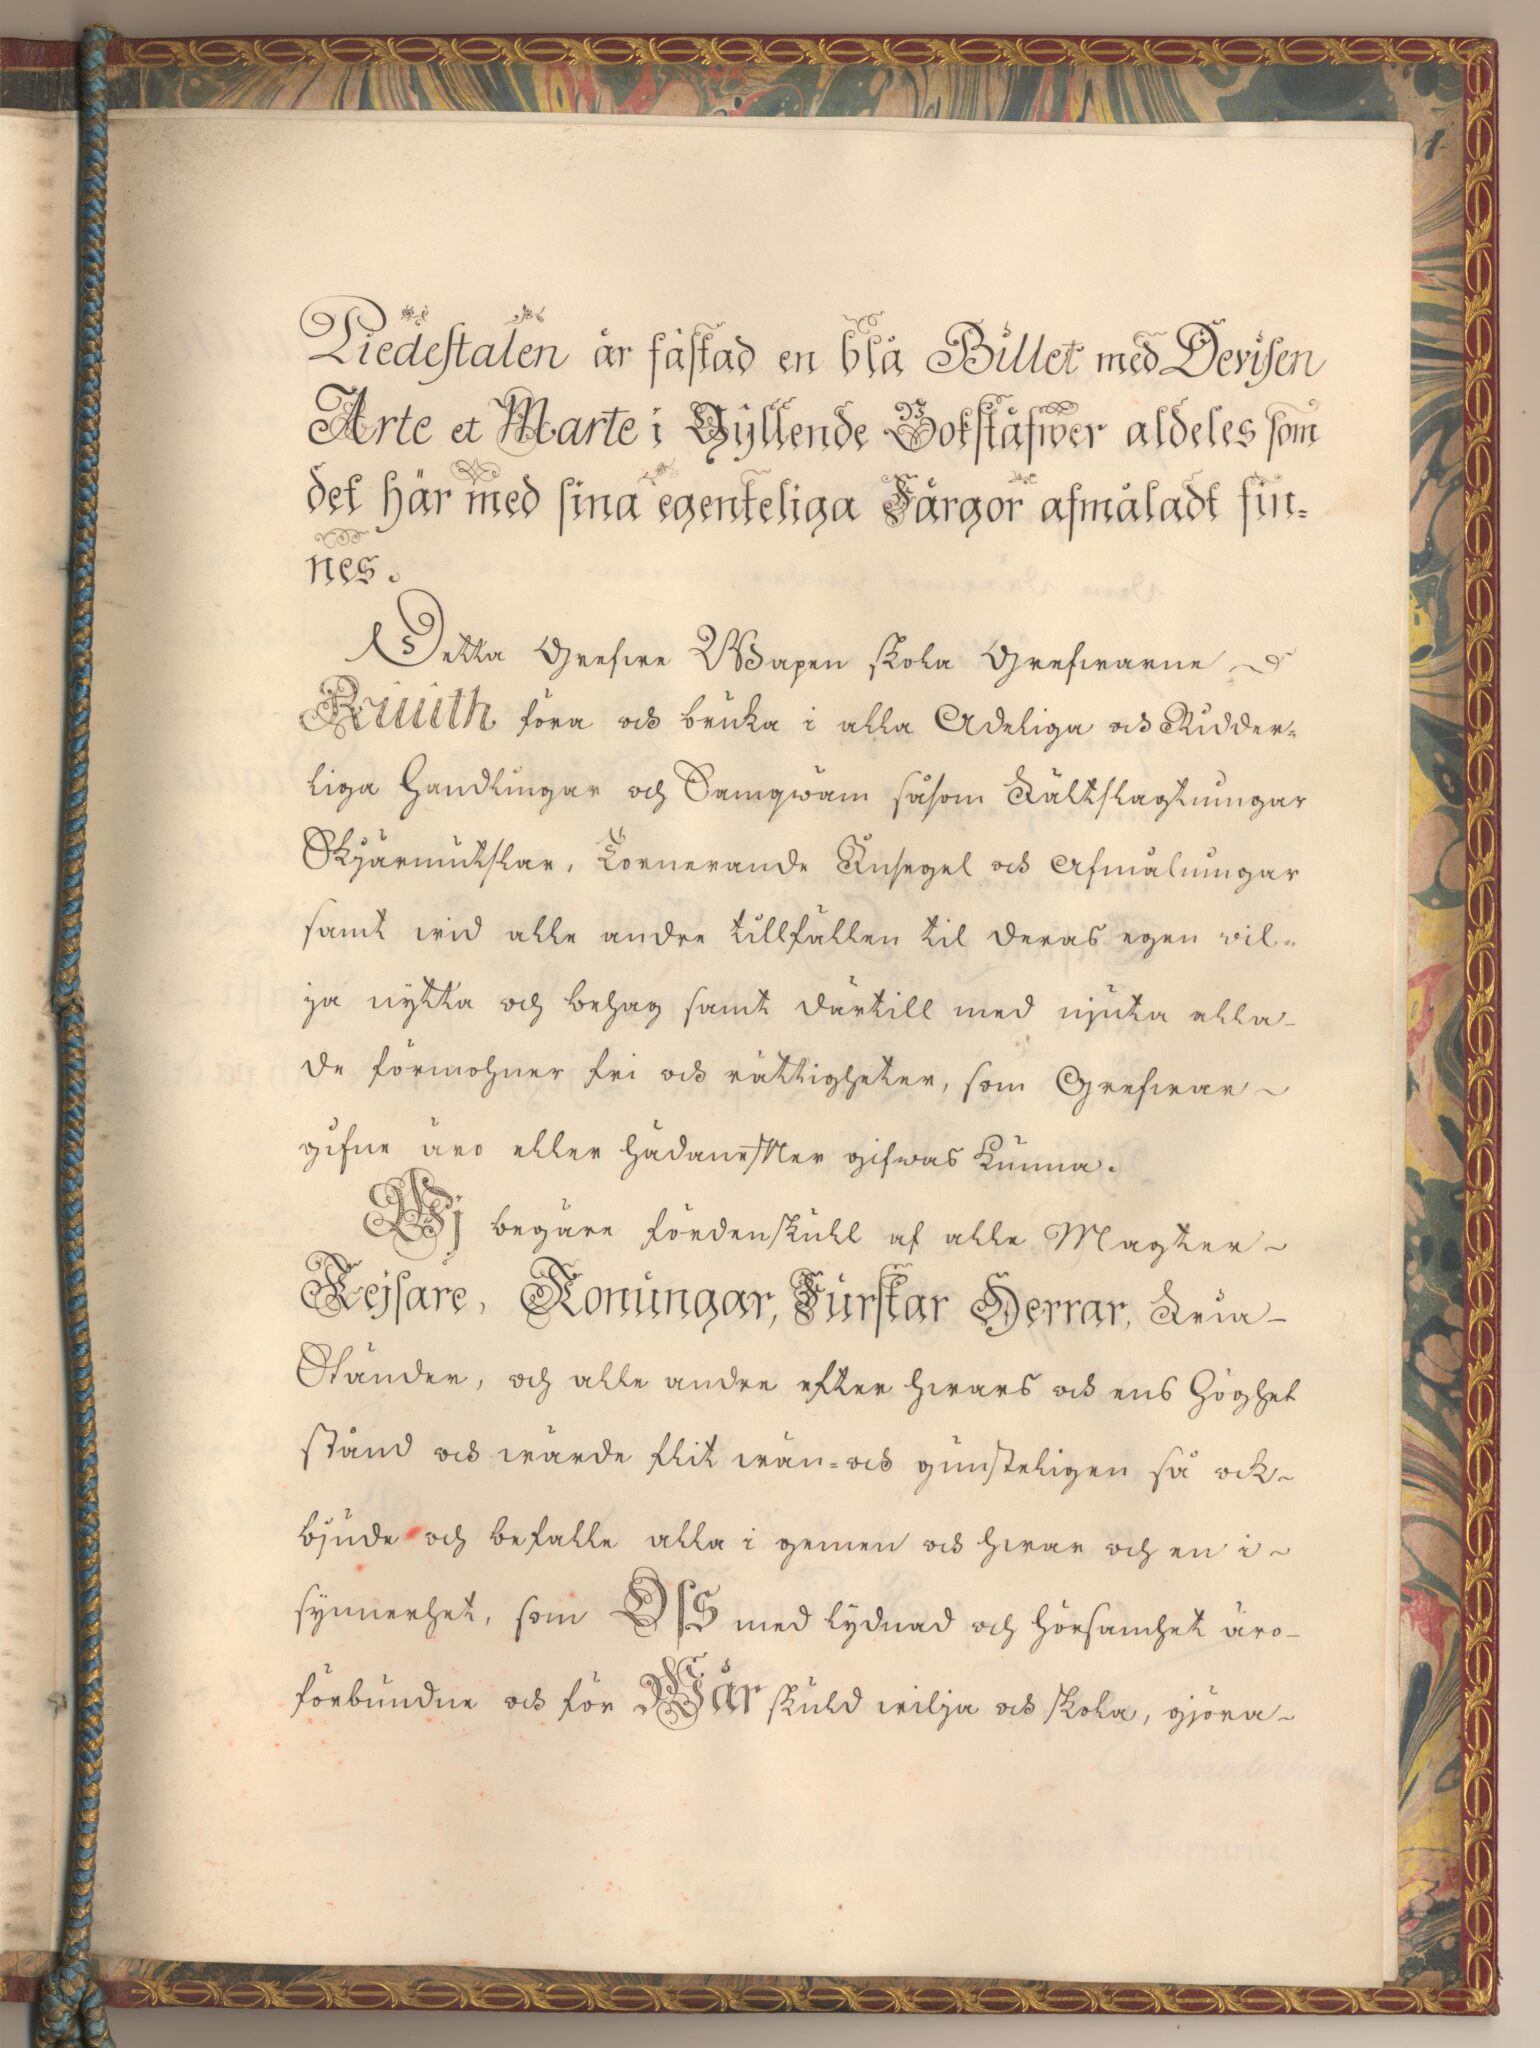 Piedestalen är fästad en blå Billet med Devisen
Arte et Marte i Gyllende Bokstäfwer aldeles som
det här med sina egenteliga Färgor afmåladt fin=
nes.
Detta Grefwe Wapen skola Grefwarne
Ruuth föra och bruka i alla Adeliga och Ridder=
liga Handlingar och Samqwäm såsom Fältslagtningar
Skjärmütslar, Tornerande Insegel och Afmålningar
samt wid alle andre tillfällen til deras egen wil=
ja nytta och behag samt därtill med njuta alla
de förmohner fri och rättigheter, som Grefwar
gifne äro eller hädanefter gifwas kunna.
Wj begäre fördenskuhl af alle Magter
Kejsare, Konungar, Furstar Herrar, Fria
Ständer, och alle andre efter hwars och ens Höghet
stånd och wärde flit wän= och gunsteligen så ock
bjude och befalle alla i gemen och hwar och en i
synnerhet, som Oss med lydnad och hörsamhet äro
förbundne och för Wår skuld wilja och skola, gjöra